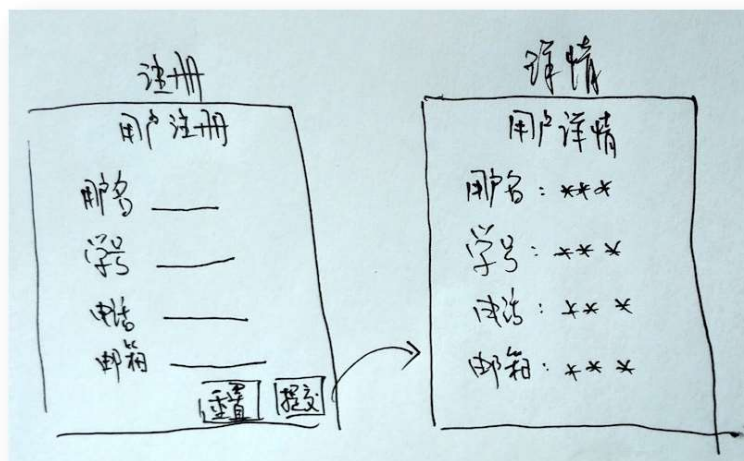 注册
用户注册
用户名
学号
电话
邮箱
重置 提交
详情
用户详情
用户名：***
学号：***
电话：***
邮箱：***